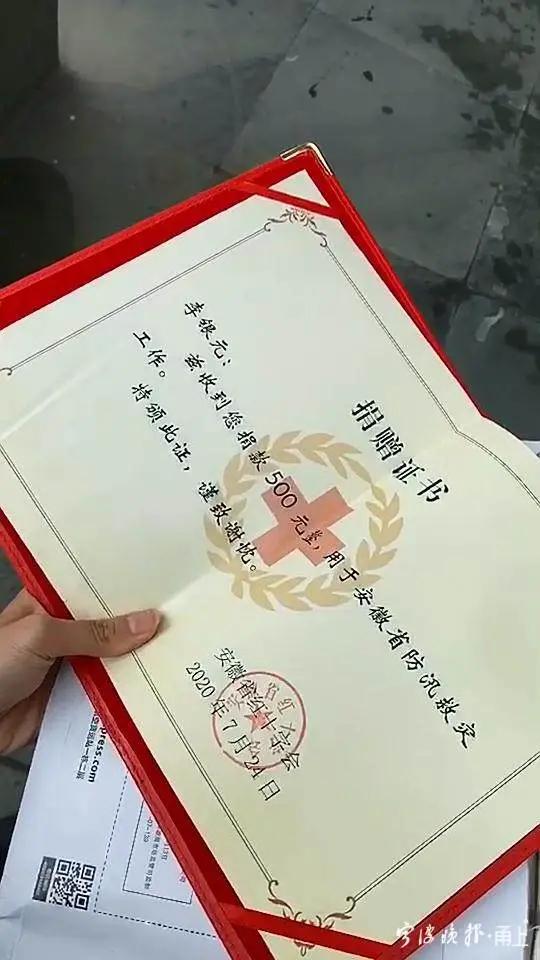 捐赠证书
李银元:
兹收到您捐款500元整,用于安徽省防汛救灾
工作。
特颁此证,谨致谢忱。
安徽省红十字会
2020年7月24日
press.com
宁波晚报·甬上